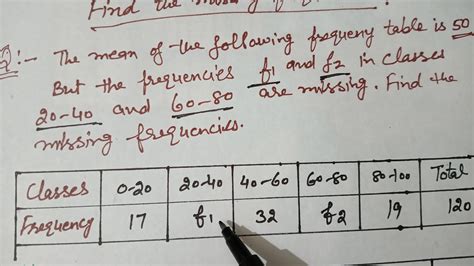 Find the missing f
Q:- The mean of the following frequency table is 50
But the frequencies f1 and f2 in classes
20-40 and 60-80 are missing. Find the
missing frequencies.
Classes 0-20 20-40 40-60 60-80 80-100 Total
Frequency 17 f1 32 f2 19 120